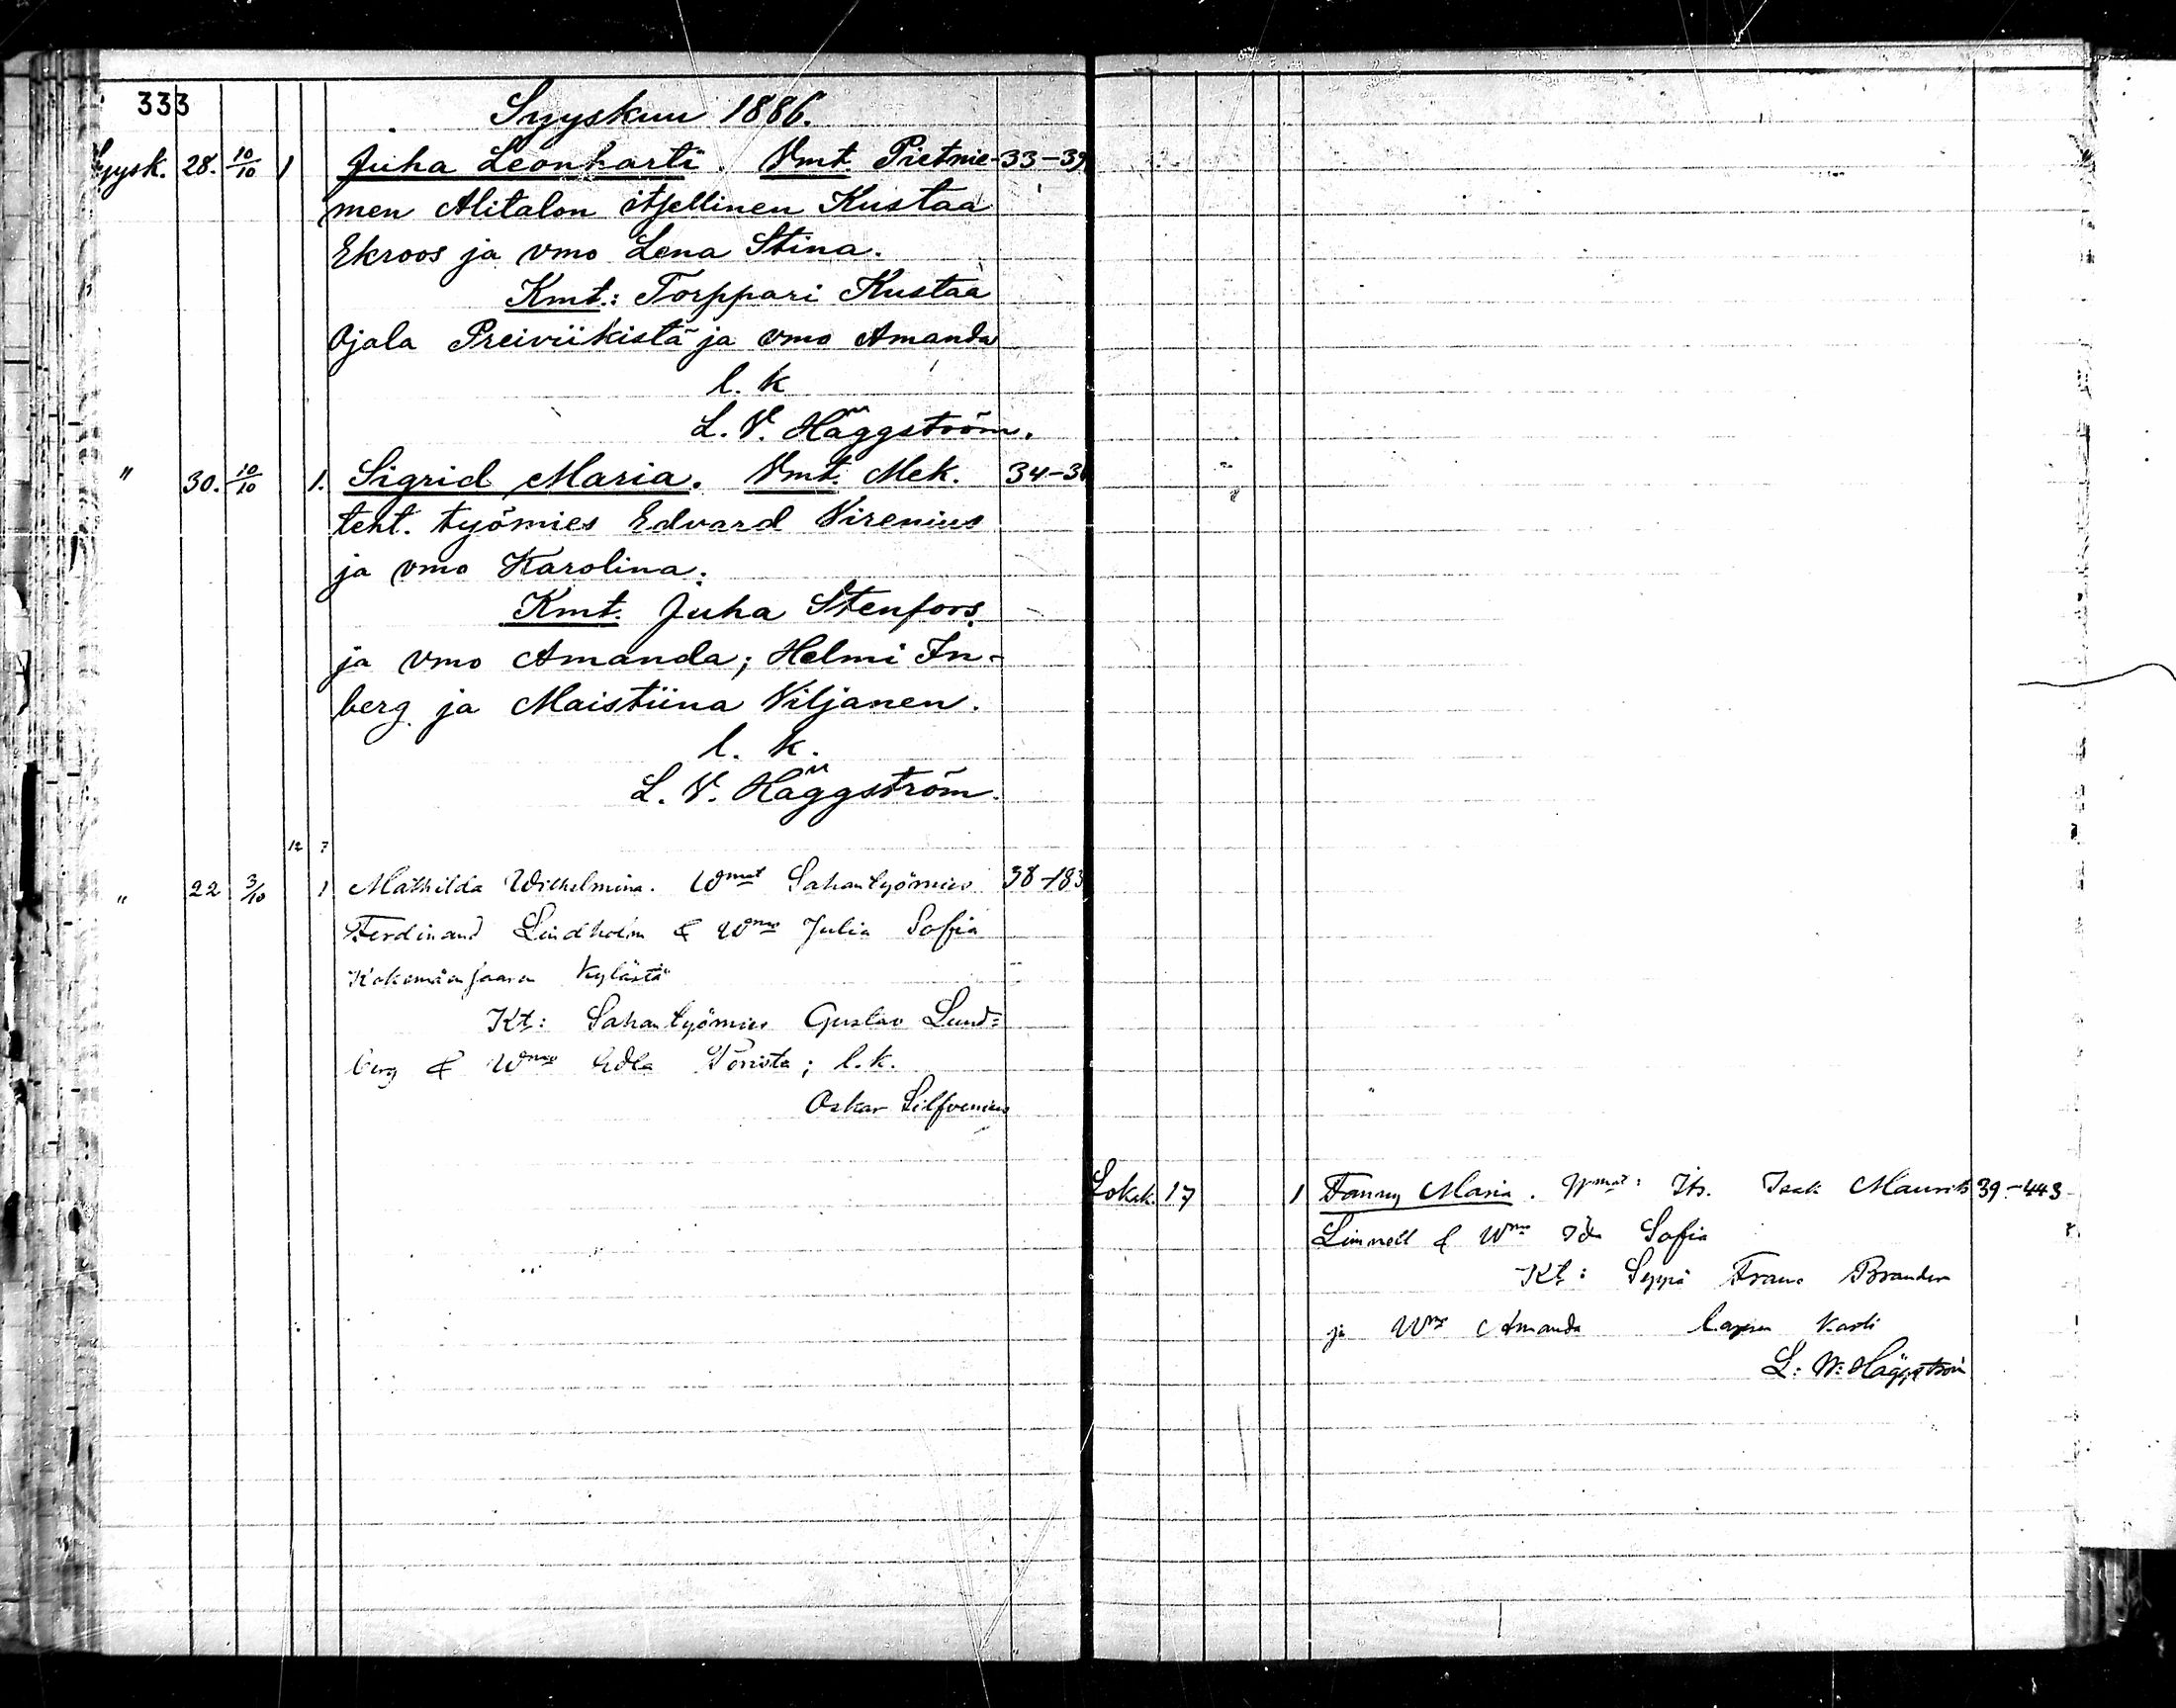 333
Syyskuu 1886.
Syysk. 28. 10/10 1 Juha Leonharti. Vmt. Pietnie- 33-39
men Alitalon itsellinen Kustaa
Ekroos ja vmo Lena Stina.
Kmt.: Torppari Kustaa
Ojala Preiviikistä ja vmo Amanda
l. k
L. V. Häggström.
" 30. 10/10 1. Sigrid Maria. Vmt. Mek. 34-3
teht. työmies Edvard Virenius
ja vmo Karolina.
Kmt. Juha Stenfors
ja vmo Amanda; Helmi In-
berg ja Maistiina Viljanen.
l. k.
L. V. Häggström.
12 7
" 22 3/10 1 Mathilda Wilhelmina. Wmat Sahantyömies 38-183
Ferdinand Lindholm & Wmo Julia Sofia
Kokemäensaaren kylästä
Kt: Sahantyömies Gustav Lund=
berg & Wmo Edla ; l.k.
Oskar Silfvenius
Lokak. 17 1 Fanny Maria. Wmat: Its. Isak Maurits 39-443
Linnell & Wmo Ida Sofia
Kt: Seppä Frans Brander
ja Wmo Amanda lapsen kasti
L: W: Häggström